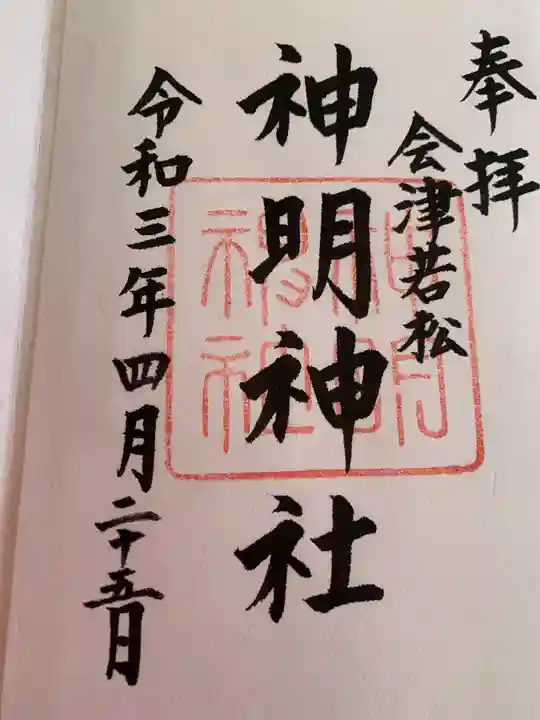 奉拝
会津若松
神明神社
神明
神社
令和三年四月二十五日